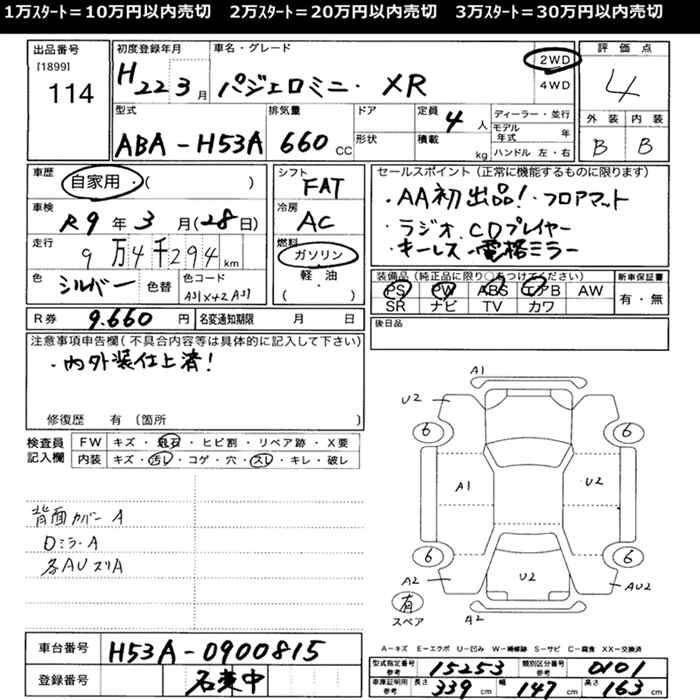 1万ｽﾀｰﾄ＝10万円以内売切　2万ｽﾀｰﾄ＝20万円以内売切　3万ｽﾀｰﾄ＝30万円以内売切
出品番号
[1899]
114
初度登録年月
H22 3月
車名・グレード
パジェロミニ・ XR
2WD
4WD
評価点
4
型式
ABA-H53A
排気量
660 CC
ドア
形状
定員 4 人
積載 kg
ディーラー・並行
モデル年式 年
ハンドル 左・右
外装 内装
B B
車歴
自家用・( )
シフト
FAT
車検
R9年3月(28日)
冷房
AC
走行
9万4千294km
燃料
ガソリン
軽・油
( )
色
シルバー 色替
色コード
A31X42A31
R券 9.660 円 名変通知期限 月 日
セールスポイント (正常に機能するものに限ります)
・AA初出品!・フロアマット
・ラジオ.CDプレイヤー
・キーレス・電格ミラー
装備品 (純正品に限り○をつけてください) 新車保証書
PS PW ABS エアB AW 有・無
SR ナビ TV カワ
後日品
注意事項申告欄 (不具合内容等は具体的に記入して下さい)
・内外装仕上済!
修復歴 有 (箇所 )
検査員記入欄
FW キズ・飛石・ヒビ割・リペア跡・X要
内装 キズ・汚レ・コゲ・穴・スレ・キレ・破レ
背面カバーA
Dミラ-A
各AUスリA
A1
U2
6 6
A1 U2
6 6
A2 U2 AU2
有
スペア
A2
A－キズ E－エクボ U－凹み W－補修跡 S－サビ C－腐食 XX－交換済
車台番号 H53A-0900815
登録番号 名東中
型式指定番号 参考 15253 類別区分番号 参考 0101
車庫証明用 参考 長さ 339 cm 幅 147 cm 高さ 163 cm